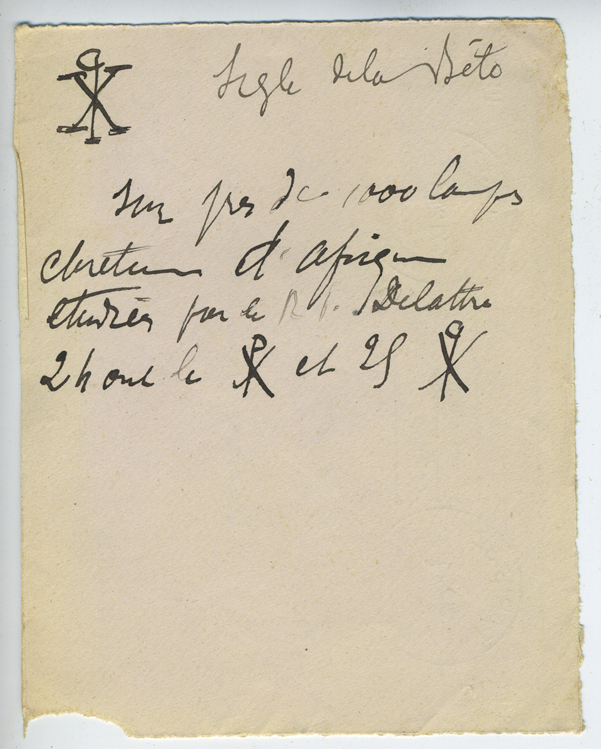 Sigle de la
sur pres de 1000 lampes
chretiennes d'afrique
etudiées par le R P. Delattre
24 ont le ☧ et 25